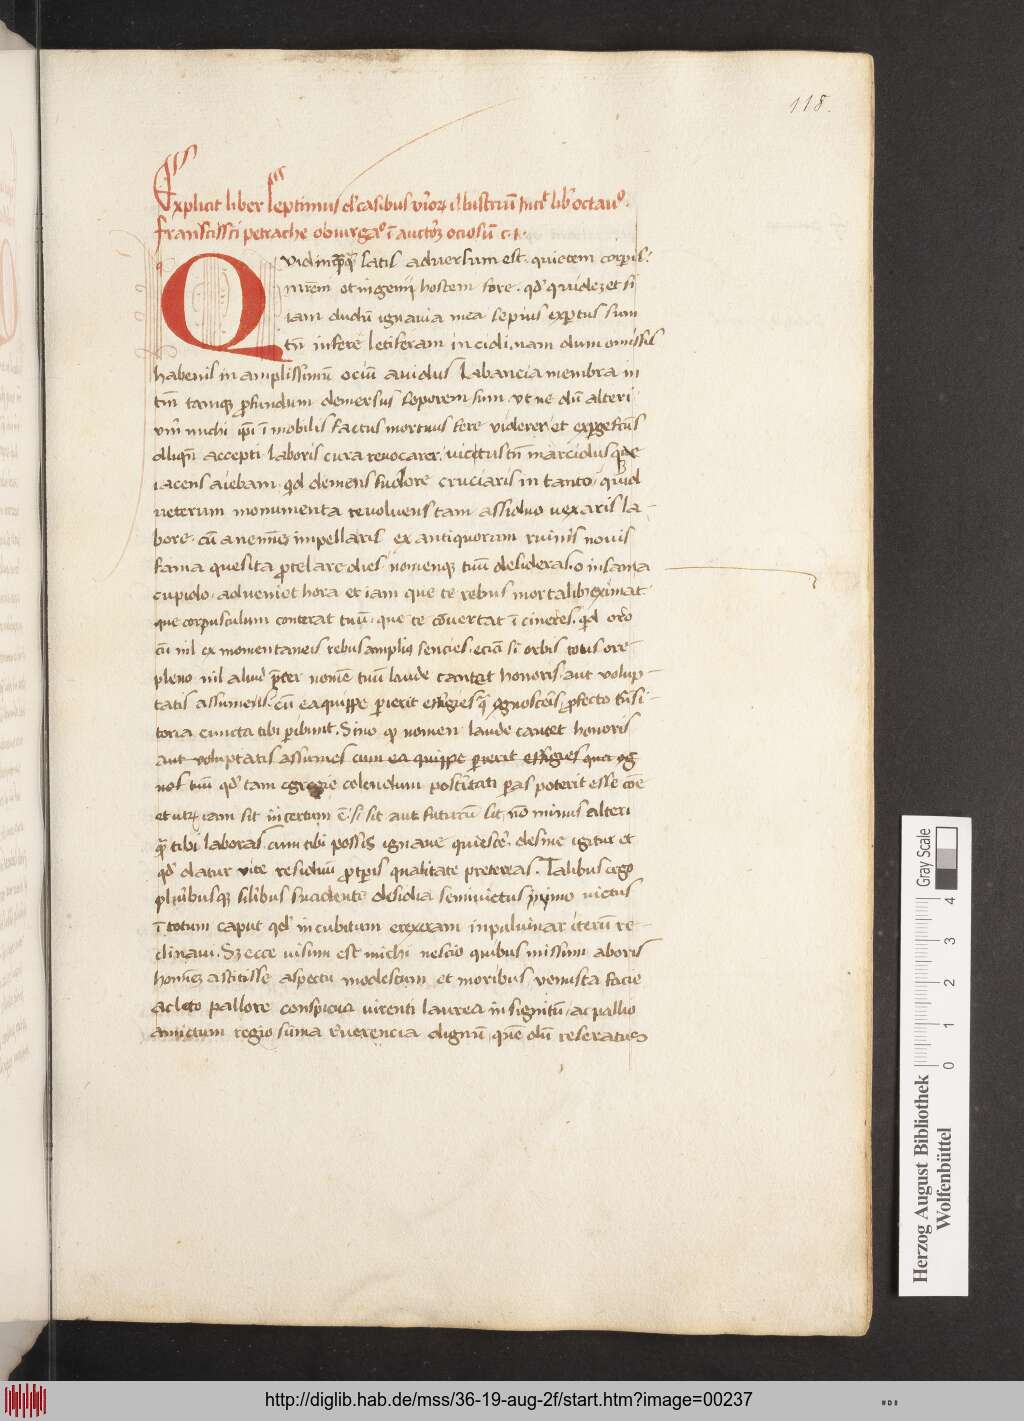 118.
Explicit liber septimus de casibus virorum illustrium Incipit liber octavus.
Francissci petrache obiurgatio in auctorem ociosum c. i.
Quid inquam satis adversum est quietem corporis
nostrem et ingenii hostem fore. quod quidem et si
iam dudum ignavia mea sepius expertus sum
tamen in fere letiferam incidi. nam dum omissis
habenis in amplissimum ocium avidus labancia membra in
tam tamque profundum demersus soporem sum. ut ne dum alteri
michi ipsi immobilis factus mortuus fere viderer et
accepti laboris cura revocarer. victus tamen marcidus
iacens aiebam. quid demens sudore cruciaris in tanto. quid
veterum monumenta revolvens tam assiduo vexaris la-
bore. cum a nemine impellaris ex antiquorum ruinis novis
fama quesita protelare dies nomenque tuum desideras. o insana
cupido. adveniet hora et iam que te rebus mortalibus eximat
que corpusculum conterat tuum. que te convertat in cineres. quid oro
cum nil ex momentaneis rebus amplius sencies. eciam si orbis totus ore
pleno nil aliud preter nomen tuum laude cantet honoris. aut volup-
tatis assumens. cum ea quippe perierit
cuncta tibi peribunt. Sino quod nomen laude cantet honoris
aut voluptatis assumes cum ea quippe perierit effigies qua cog
nos tuum quod tam egregie colendum posteritati poterit esse
iam sit incertum est. si sit aut futurum sit, non minus alteri
quam tibi laboras. cum tibi possis ignave quiescere. desine igitur et
quod datur vite residuum qualitate pretereas. Talibus ergo
pluribusque similibus suadente desidia semivictus ymmo victus
in totum caput quod in cubitum erexeram in pulvinar iterum re-
clinavi. Sed ecce visum est michi nescio quibus missum ab oris
hominem astitisse aspectu modestum et moribus venusta facie
ac leto pallore conspicua virenti laurea insignitum. ac pallio
amictum regio summa reverencia dignum, quem dum reseratus
Herzog August Bibliothek
Wolfenbüttel
Gray Scale
0 1 2 3 4
http://diglib.hab.de/mss/36-19-aug-2f/start.htm?image=00237